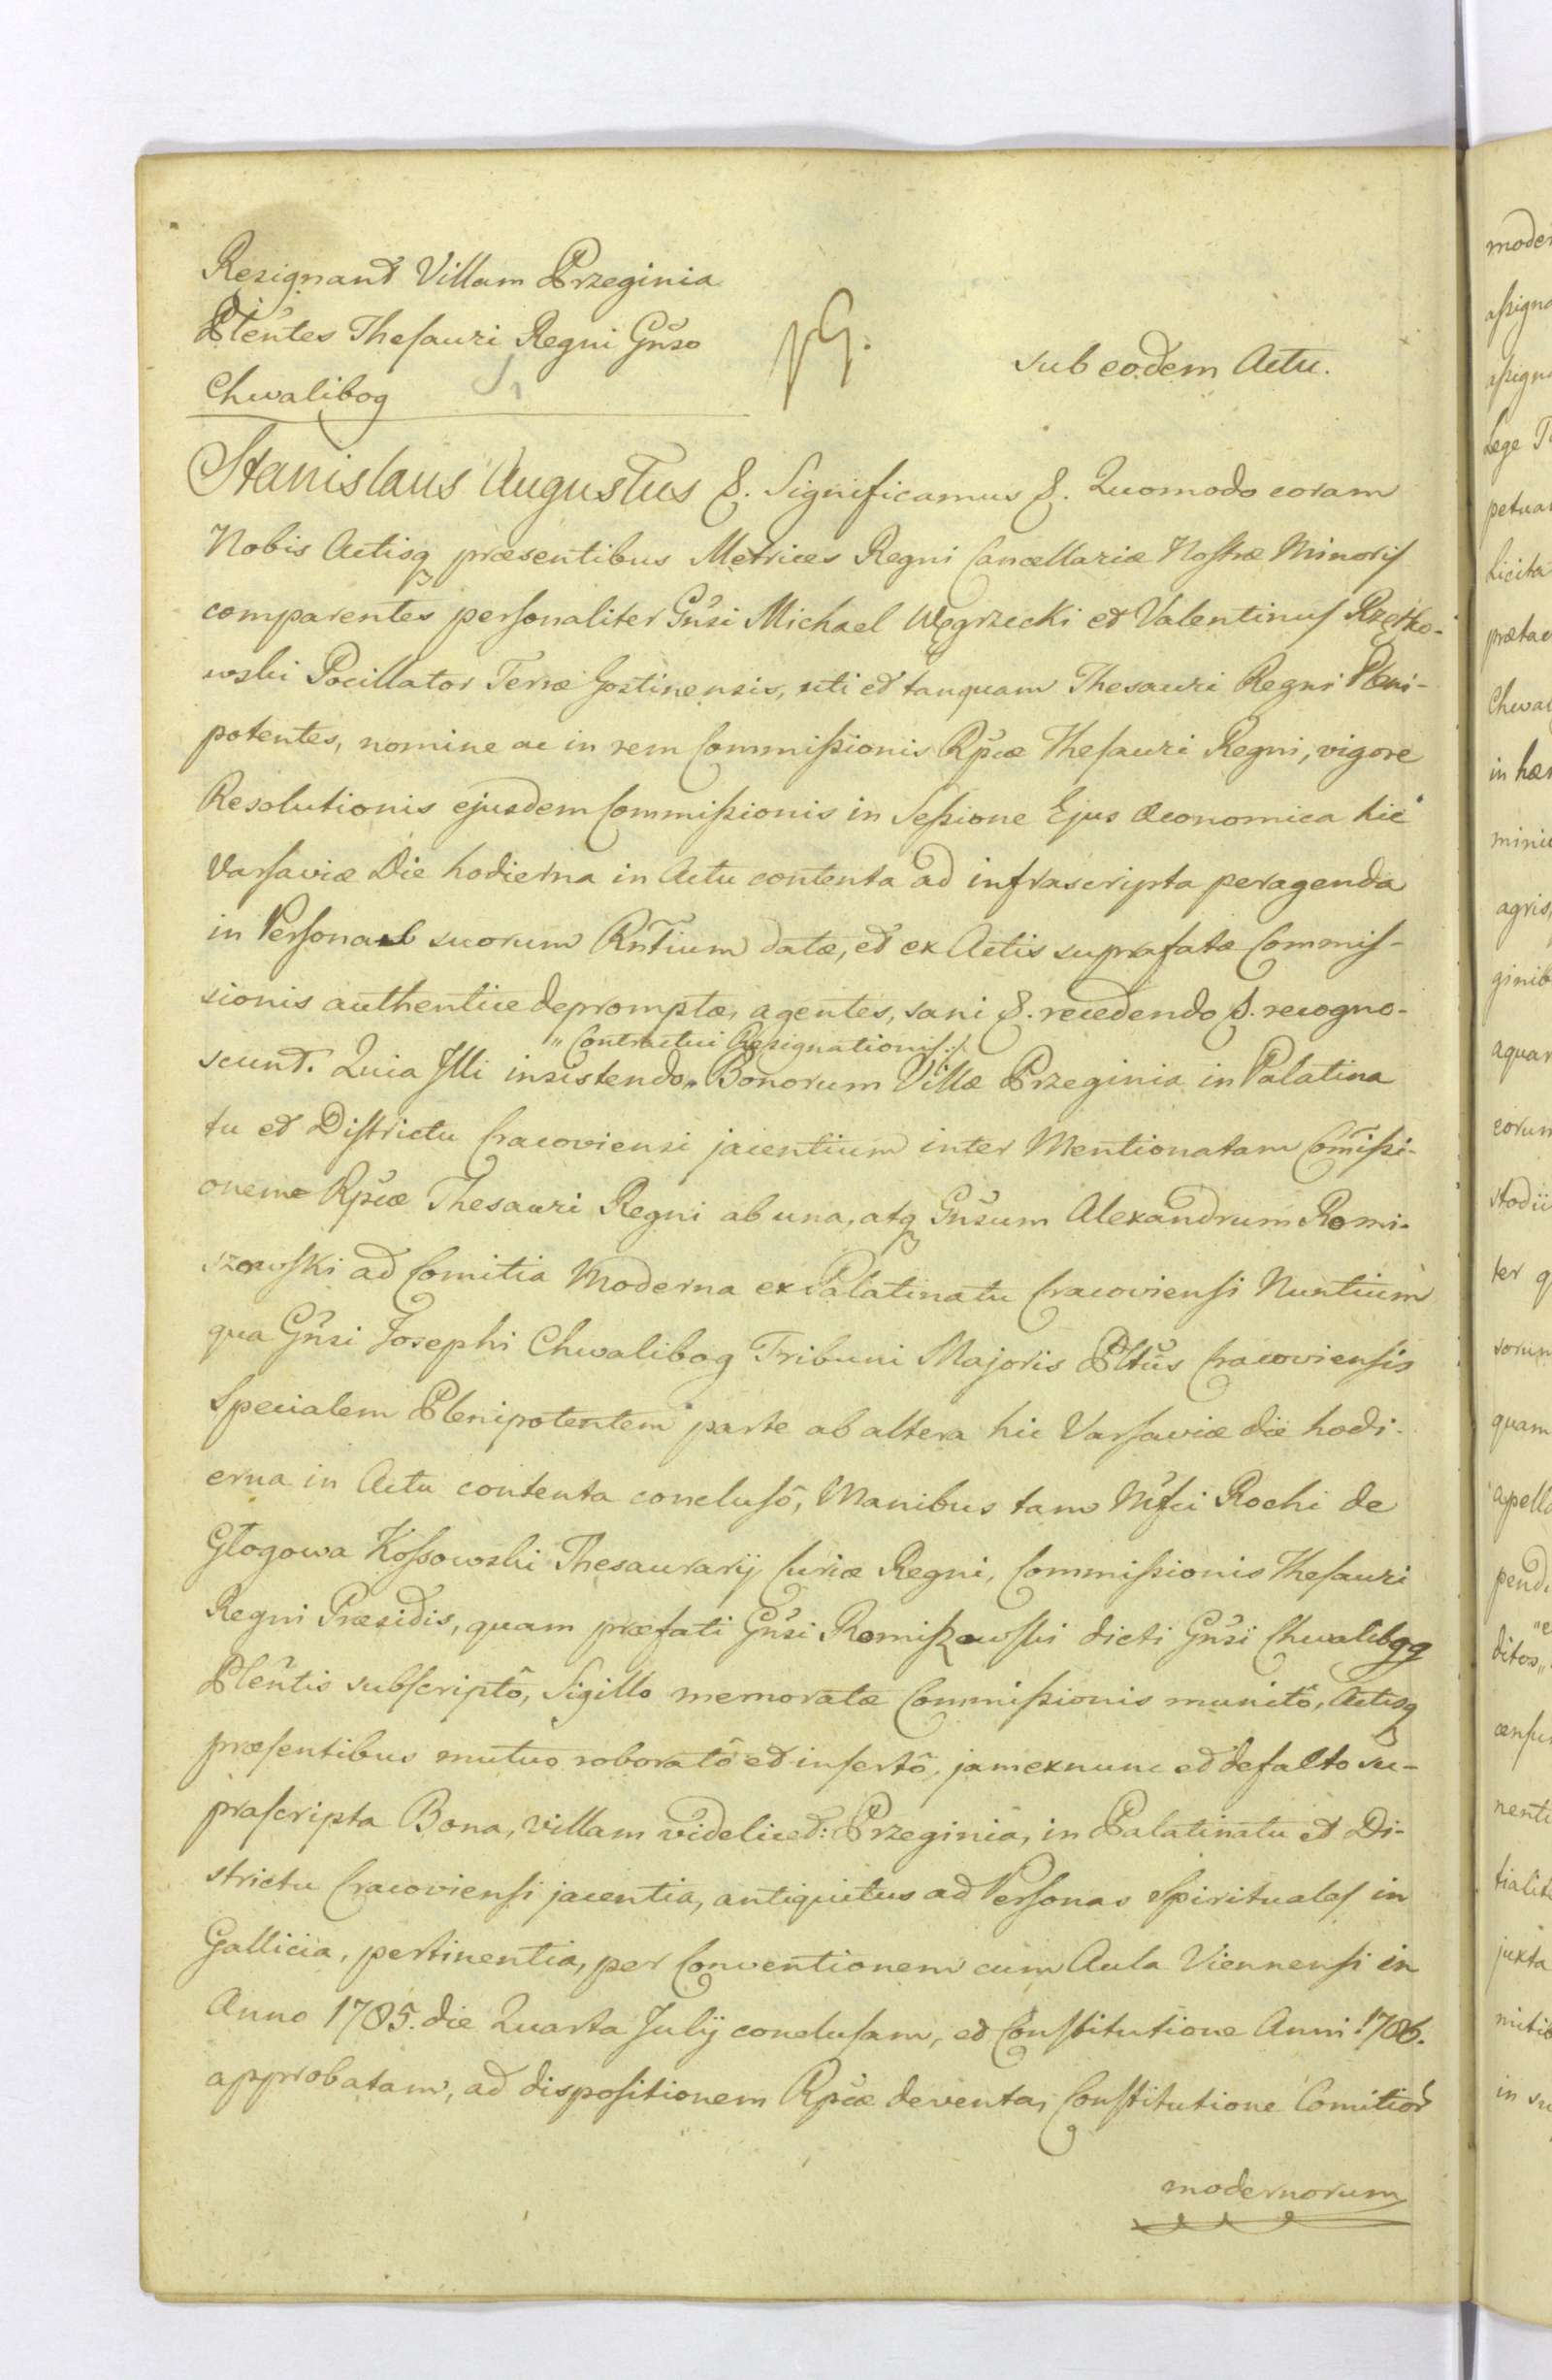 Resignant Villam Przeginia
Plentes Thesauri Regni Gnso
Chwalibog
sub eodem Actu.
Stanislaus Augustus &. Significamus &. Quomodo coram
Nobis Actisq præsentibus Metrices Regni Cancellariæ Nostræ Minoris
comparentes personaliter Gnsi Michael Węgrzecki et Valentinus Rzętko-
wski Pocillator Terræ Gostinensis, uti et tanquam Thesauri Regni Pleni-
potentes, nomine ac in rem Commissionis Rpcæ Thesauri Regni, vigore
Resolutionis ejusdem Commissionis in Sessione Ejus Œconomica hic
Varsaviæ Die hodierna in Actu contenta ad infrascripta peragenda
in suorum Rntium datæ, et ex Actis suprafatæ Commis-
sionis authentice depromptæ, agentes, sani &. recedendo &. recogno-
" Contractui Resignationis :/.
scunt. Quia Illi insistendo " Bonorum Villæ Przeginia in Palatina
tu et Districtu Cracoviensi jacentium inter Mentionatam Comissi-
onem Rpcæ Thesauri Regni ab una, atq Gnsum Alexandrum Romi-
szowski ad Comitia Moderna ex Palatinatu Cracoviensi Nuntium
qua Gnsi Josephi Chwalibog Tribuni Majoris Pltus Cracoviensis
Specialem Plenipotentem parte ab altera hic Varsaviæ die hodi-
erna in Actu contenta conclusô, Manibus tam Mfci Rochi de
Głogowa Kossowski Thesaurarij Curiæ Regni, Commissionis Thesauri
Regni Præsidis, quam præfati Gnsi Romiszowski dicti Gnsi Chwalibog
Plentis subscriptô, Sigillo memoratæ Commissionis munitô, Actisq
præsentibus mutuo roboratô et insertô, jam ex nunc et de facto su-
prascripta Bona, villam videlicet: Przeginia, in Palatinatu et Di-
strictu Cracoviensi jacentia, antiquitus ad Personas Spirituales in
Gallicia, pertinentia, per Conventionem cum Aula Viennensi in
Anno 1785. die Quarta Julij conclusam, et Constitutione Anni 1786.
approbatam, ad dispositionem Rpcæ deventa, Constitutione Comitior
modernorum